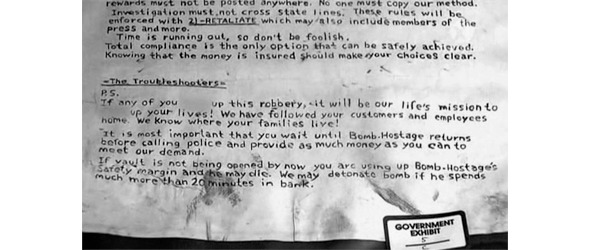 rewards must not be posted anywhere. No one must copy our method.
Investigation must not cross state lines. These rules will be
enforced with 2)-RETALIATE which may also include members of the
press and more.
Time is running out, so don't be foolish.
Total compliance is the only option that can be safely achieved.
Knowing that the money is insured should make your choices clear.
-The Troubleshooters-
P.S.
If any of you up this robbery, it will be our life's mission to
up your lives! We have followed your customers and employees
home. We Know where your families live!
It is most important that you wait until Bomb-Hostage returns
before calling police and provide as much money as you can to
meet our demand.
If vault is not being opened by now you are using up Bomb-Hostage's
safety margin and he may die. We may detonate bomb if he spends
much more than 20 minutes in bank.
GOVERNMENT
EXHIBIT
5